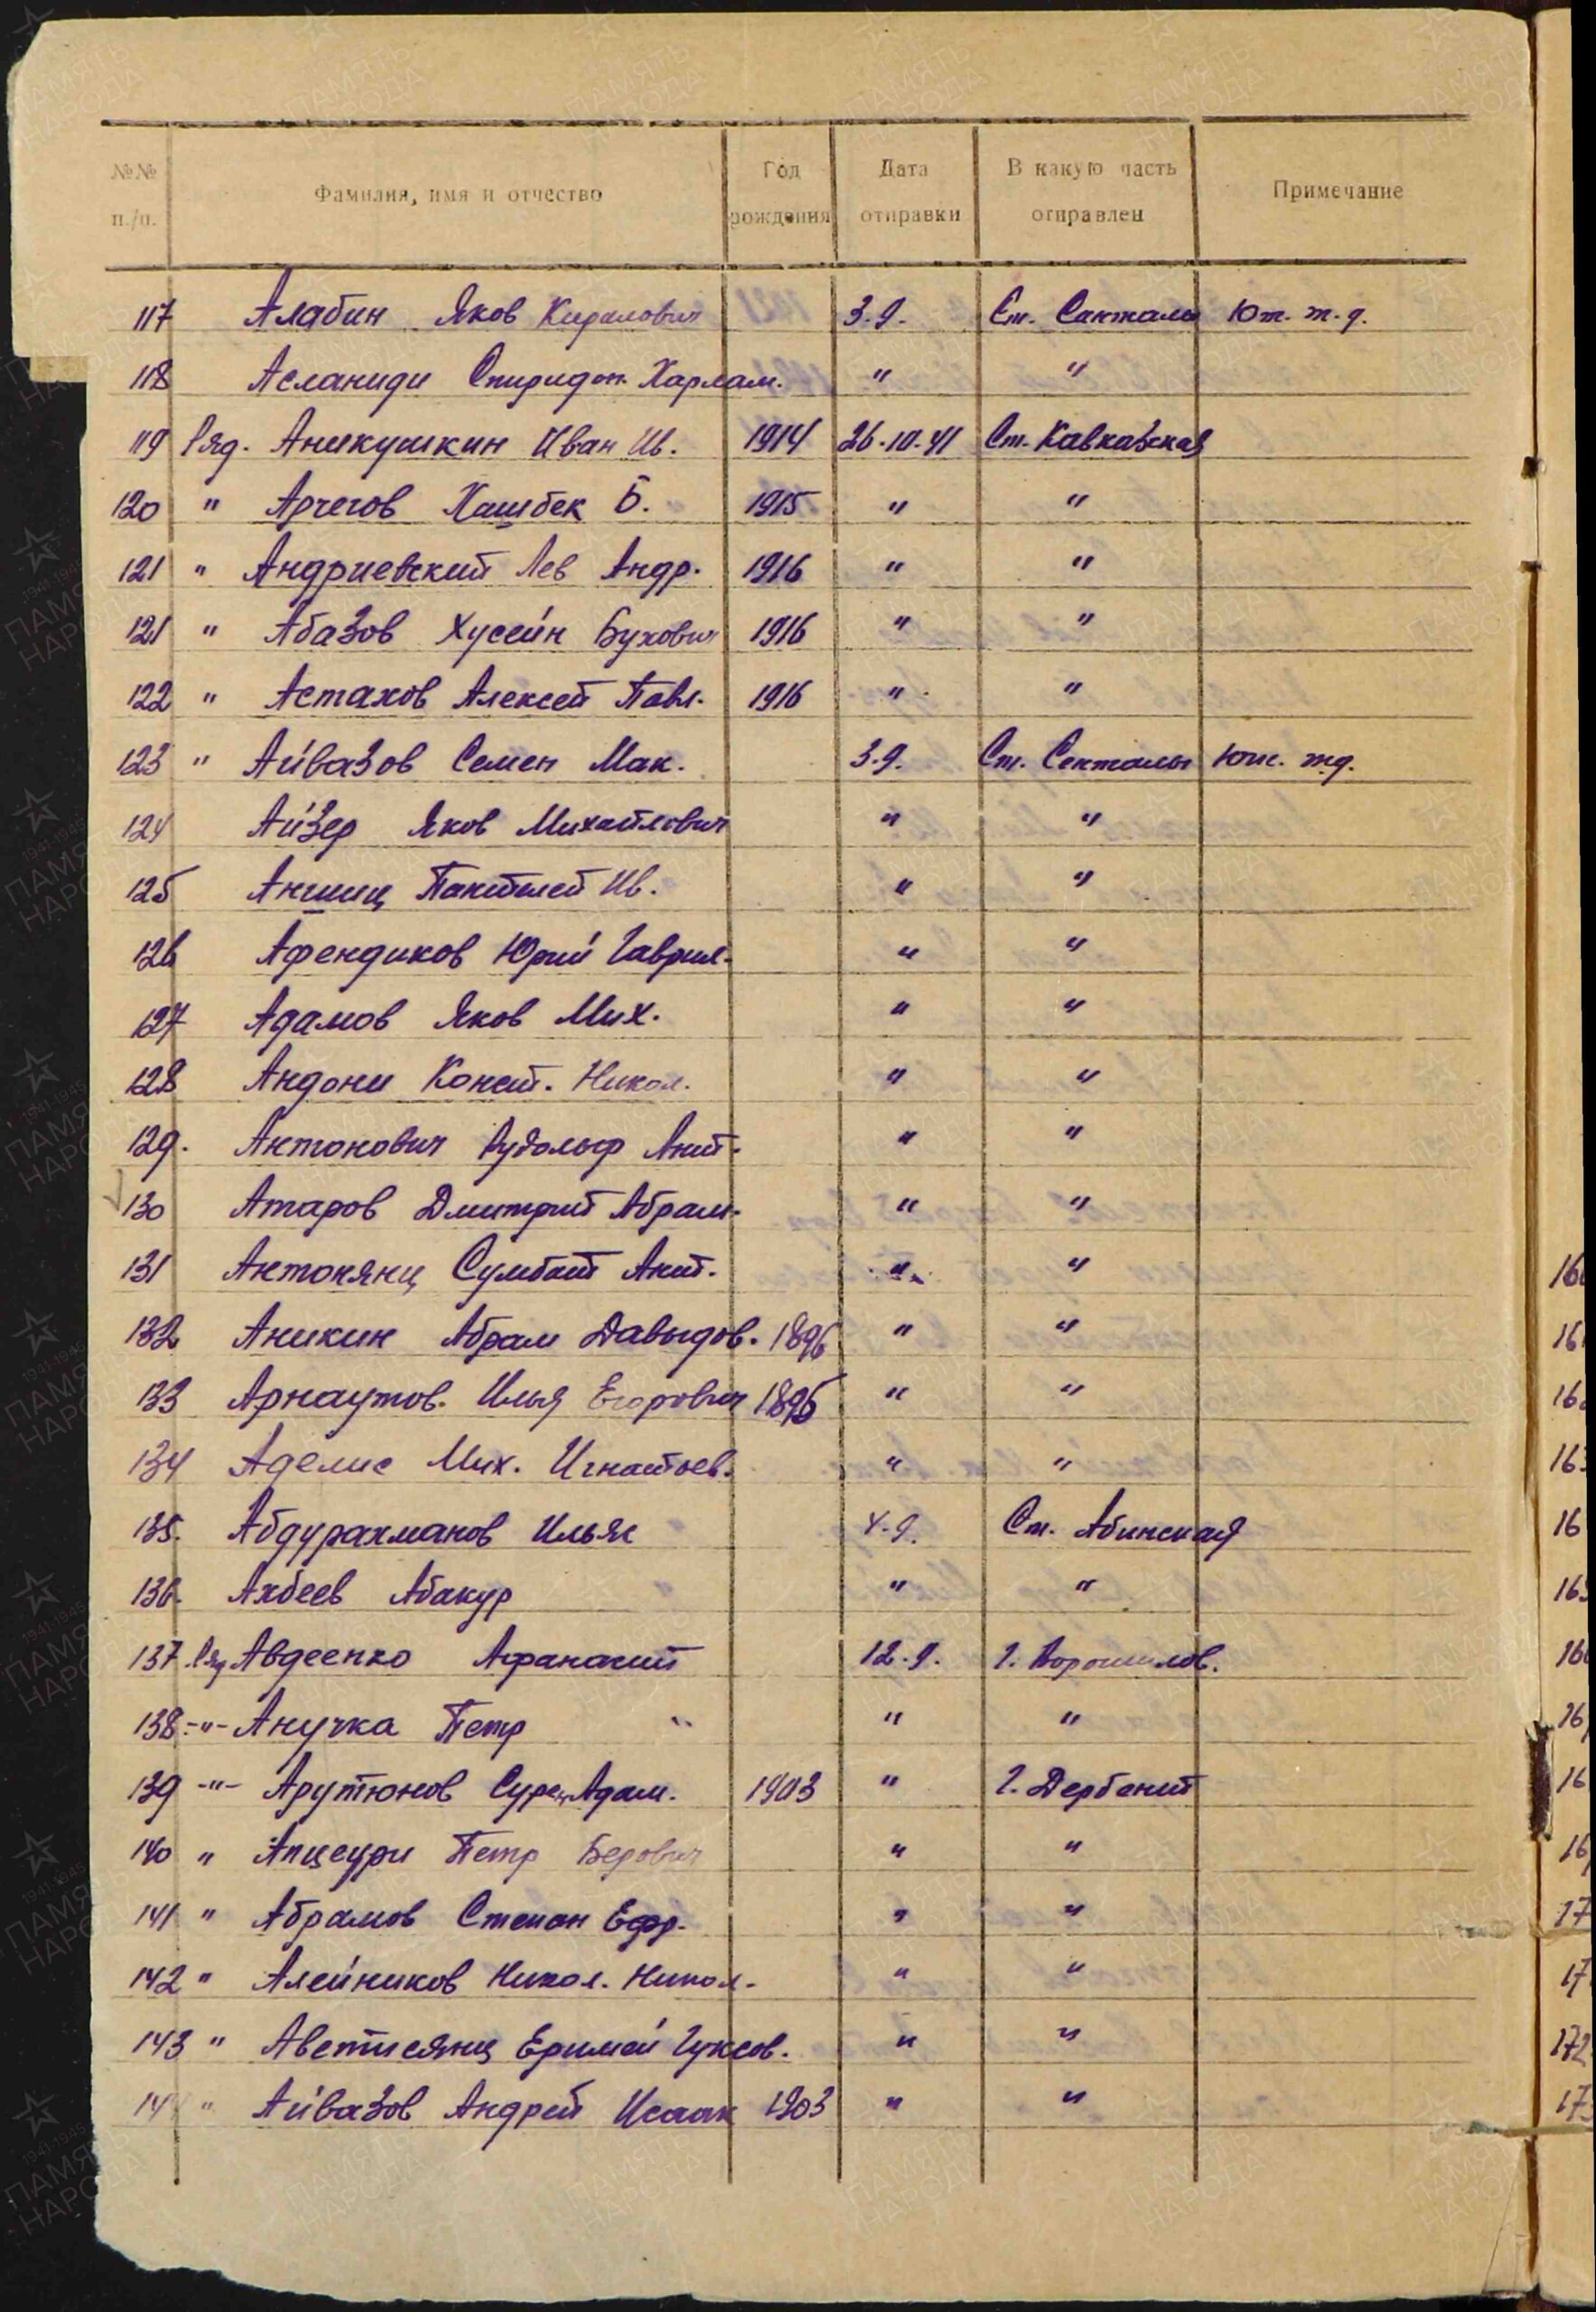 №№ п./п. Фамилия, имя и отчество Год рождения Дата отправки В какую часть отправлен Примечание
117 Алабин Яков 3.9. Ст.
118 Асланиди Спиридон. Харлам. " "
119 Ряд. Аникушкин Иван Ив. 1914 26.10.41 Ст. Кавказская
120 " Арчегов Хашбек Б. 1915 " "
121 " Андриевский Лев Андр. 1916 " "
121 " Абазов Хусейн Бухович 1916 " "
122 " Астахов Алексей Павл. 1916 " "
123 " Айвазов Семен Мак. 3.9. Ст.
124 Айзер Яков Михайлович " "
125 Ив. " "
126 Афендиков Юрий Гаврил. " "
127 Адамов Яков Мих. " "
128 Андони Конст. Никол. " "
129. Антонович Рудольф Ант. " "
130 Атаров Дмитрий Абрам. " "
131 Антонянц Сумбат Ант. " "
132 Аникин Абрам Давыдов. 1896 " "
133 Арнаутов. Илья Егорович 1895 " "
134 Аделис Мих. Игнатьев. " "
135. Абдурахманов Ильяс 4.9. Ст. Абинская
136. Ахбеев Абакур " "
137 Ряд Авдеенко Афанасий 12.9. г. Ворошилов.
138 -"- Анучка Петр " " "
139 -"- Арутюнов Сурен Адам. 1903 " г. Дербент
140 " Апцеури Петр Бедович " "
141 " Абрамов Степан Ефр. " "
142 " Алейников Никол. Никол. " "
143 " Аветисянц Еримей " "
14 " Айвазов Андрей Исаак 1903 " "